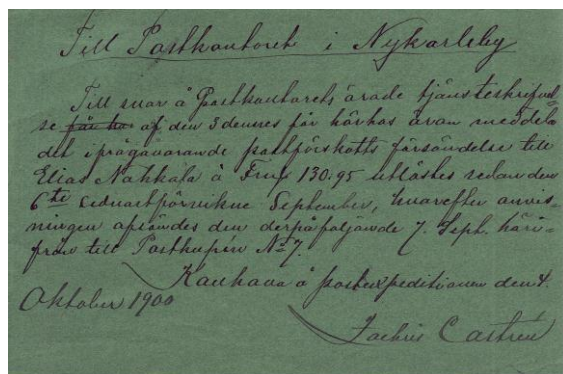 Till Postkontoret i Nykarleby
Till svar å Postkontorets ärade tjänsteskrifvel
se af den 3 dennes får härhos äran meddela
det ifrågavarande postförskotts försändelse till
Elias Nahkala å Fmk 130.95 utlöstes redan den
6te sidnast förvikne September, hvarefter anvis-
ningen afsändes den derpåföljande 7. Sept. häri-
från till Postkupén No 7.
Kauhava å postexpeditionen den 4.
Oktober 1900
Zachris Castrén